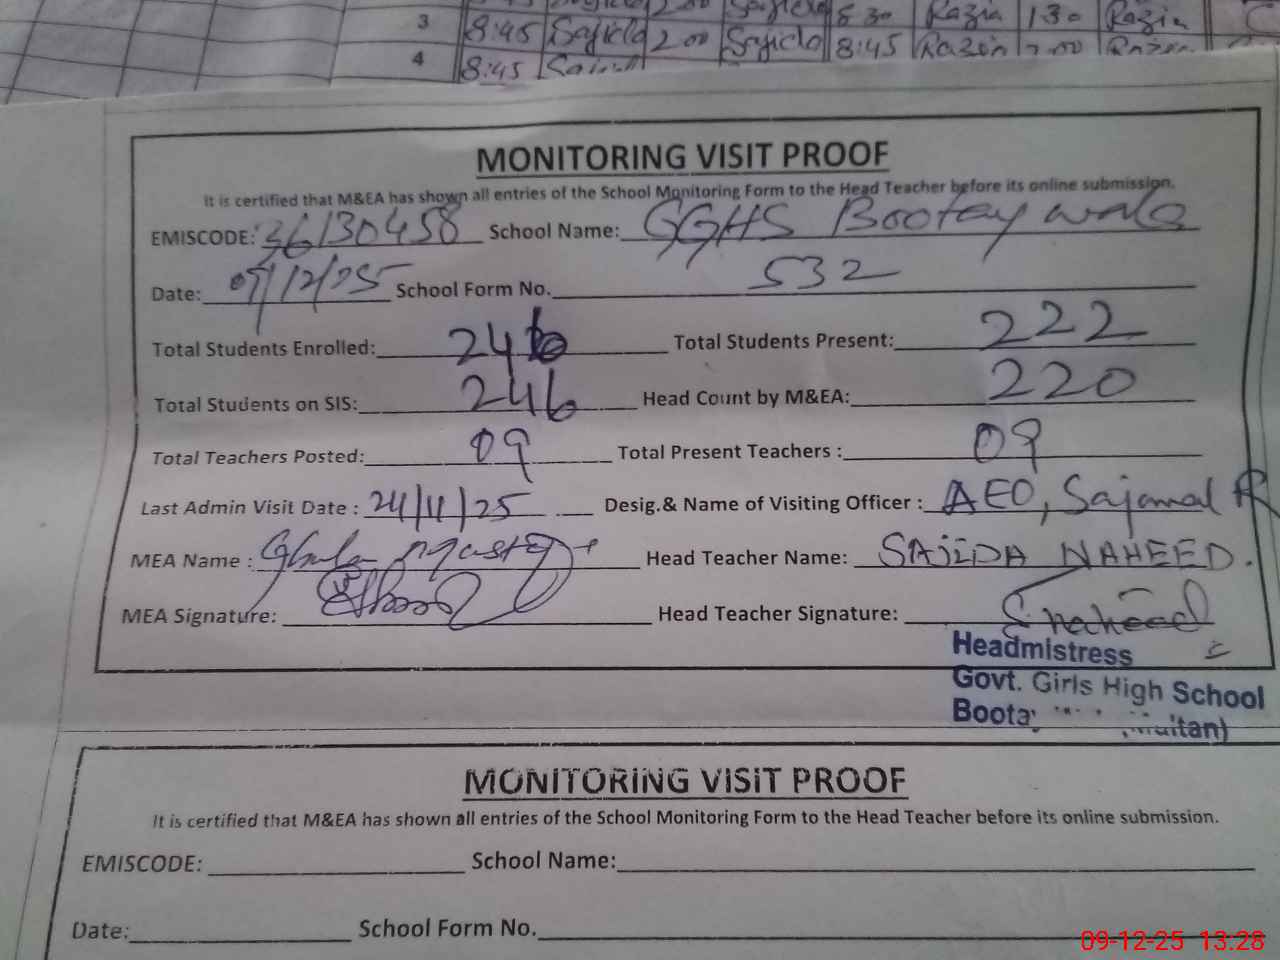 3 8:45 Sajida 2 00 Sajida 8 30 Razia 1 30 Razia
4 8:45 2 00 Sajida 8:45 Razia 2 00 Razia
8:45
MONITORING VISIT PROOF
It is certified that M&EA has shown all entries of the School Monitoring Form to the Head Teacher before its online submission.
EMISCODE: 36130458 School Name: GGHS Bootay wala
Date: 09/12/25 School Form No. 532
Total Students Enrolled: 246 Total Students Present: 222
Total Students on SIS: 246 Head Count by M&EA: 220
Total Teachers Posted: 09 Total Present Teachers : 09
Last Admin Visit Date : 24/11/25 Desig.& Name of Visiting Officer : AEO, Sajawal R
MEA Name : Head Teacher Name: SAJIDA NAHEED.
MEA Signature: Head Teacher Signature: Snaheed
Headmistress
Govt. Girls High School
Boota
MONITORING VISIT PROOF
It is certified that M&EA has shown all entries of the School Monitoring Form to the Head Teacher before its online submission.
EMISCODE: School Name:
Date: School Form No.
09-12-25 13:28